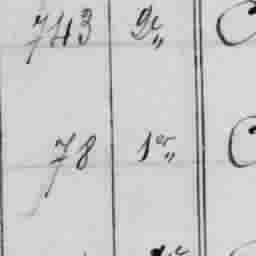 743 2e„
78 1er„